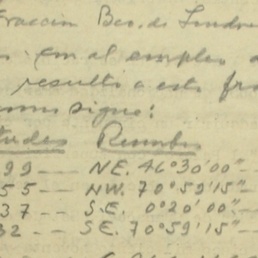 Fraccion Bco. de Londres
en el empleo
resulto a este fra
como sigue:
tudes Rumbos
99 --- NE. 46°30'00"
55 --- NW. 70°59'15"
37 --- S.E. 0°20'00"
32 --- SE. 70°59'15"